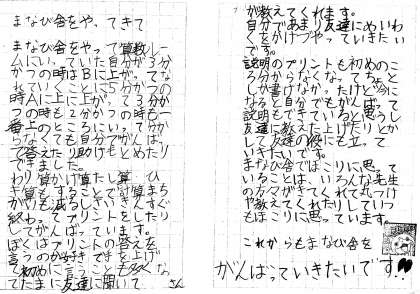 まなび舎をやってきて
まなび舎をやって算数Lー
ムにいっていた自分が3分
かつの時はBに上がってな
れていくことに5分かつの
時Aに上に上がって3分か
つの時も2分かつの時も一
番上のところにいって分か
らなくても自分でがんばっ
て答えたり助けもとめたり
できました。
わり算かけ算たし算 ひ
き算もすることで計算まち
がいも減るしさいきんすぐ
終わってプリントをしたり
してがんばっています。
ぼくはプリントの答えを
言うのが好きで を上げ
て初めに言うことも多くなっ
てたまに友達に聞いて さん
が教えてくれます。
自分であまり友達にめいわ
くをかけづやっていきたい
です。
説明のプリントも初めのこ
ろ分からなくなってちょと
しか書けなかったけど今に
なると自分でもがんばって
説明もできていると思うし
友達に教えた上げたりとか
して友達の役にも立って
いきたいです。
まなび舎でほこりに思って
いることは、いろんな先生
の方々がきてくれてただけ
や教えてくれたりしていつ
もほこりに思っています。
これからもまなび舎を
がんばっていきたいです!!